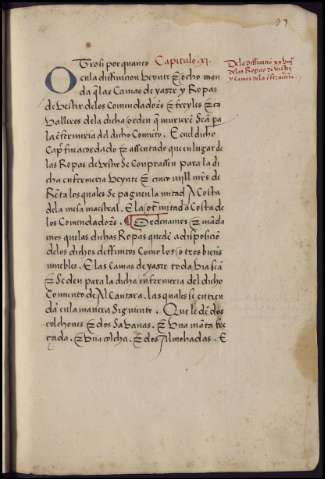 97
Otrosi por quanto Capitulo. xi.
en la diffinicion veynte & ocho man
da q̃ las Camas de yazer y Ropas
de vestir delos Comendadoꝛes & freyles & ca
valleros dela dicha orden q̃ murierẽ Seã pa
la ẽfermeria del dicho Convẽto. En el dicho
Capl̃o fue acordado & assentado que en lugar de
las Ropas de vestir Se Comprassen para la di
cha enfermeria veynte & cinco mill mr̃s de
Rẽta los quales Se paguen la mitad A Costa
dela mesa maestral. E la otͣ mitad a Costa de
los Comendadoꝛes. Ordenamos & mãda
mos que las dichas Ropas quedẽ a disposiciõ
delos dichos deffuntos Como los otros bienes
muebles. E las Camas de yazer toda via sea
& Se den para la dicha enfermeria del dicho
Convento de Alcantara. las quales Se entien
dã en la manera Siguiente. Que le dẽ dos
colchones & dos Savanas. & Una mãta fre
çada. & Una colcha. & dos Almohadas. E
Dela diffiniciõ xxviij
delas Ropas de vestir
y camas dela ẽfermeria